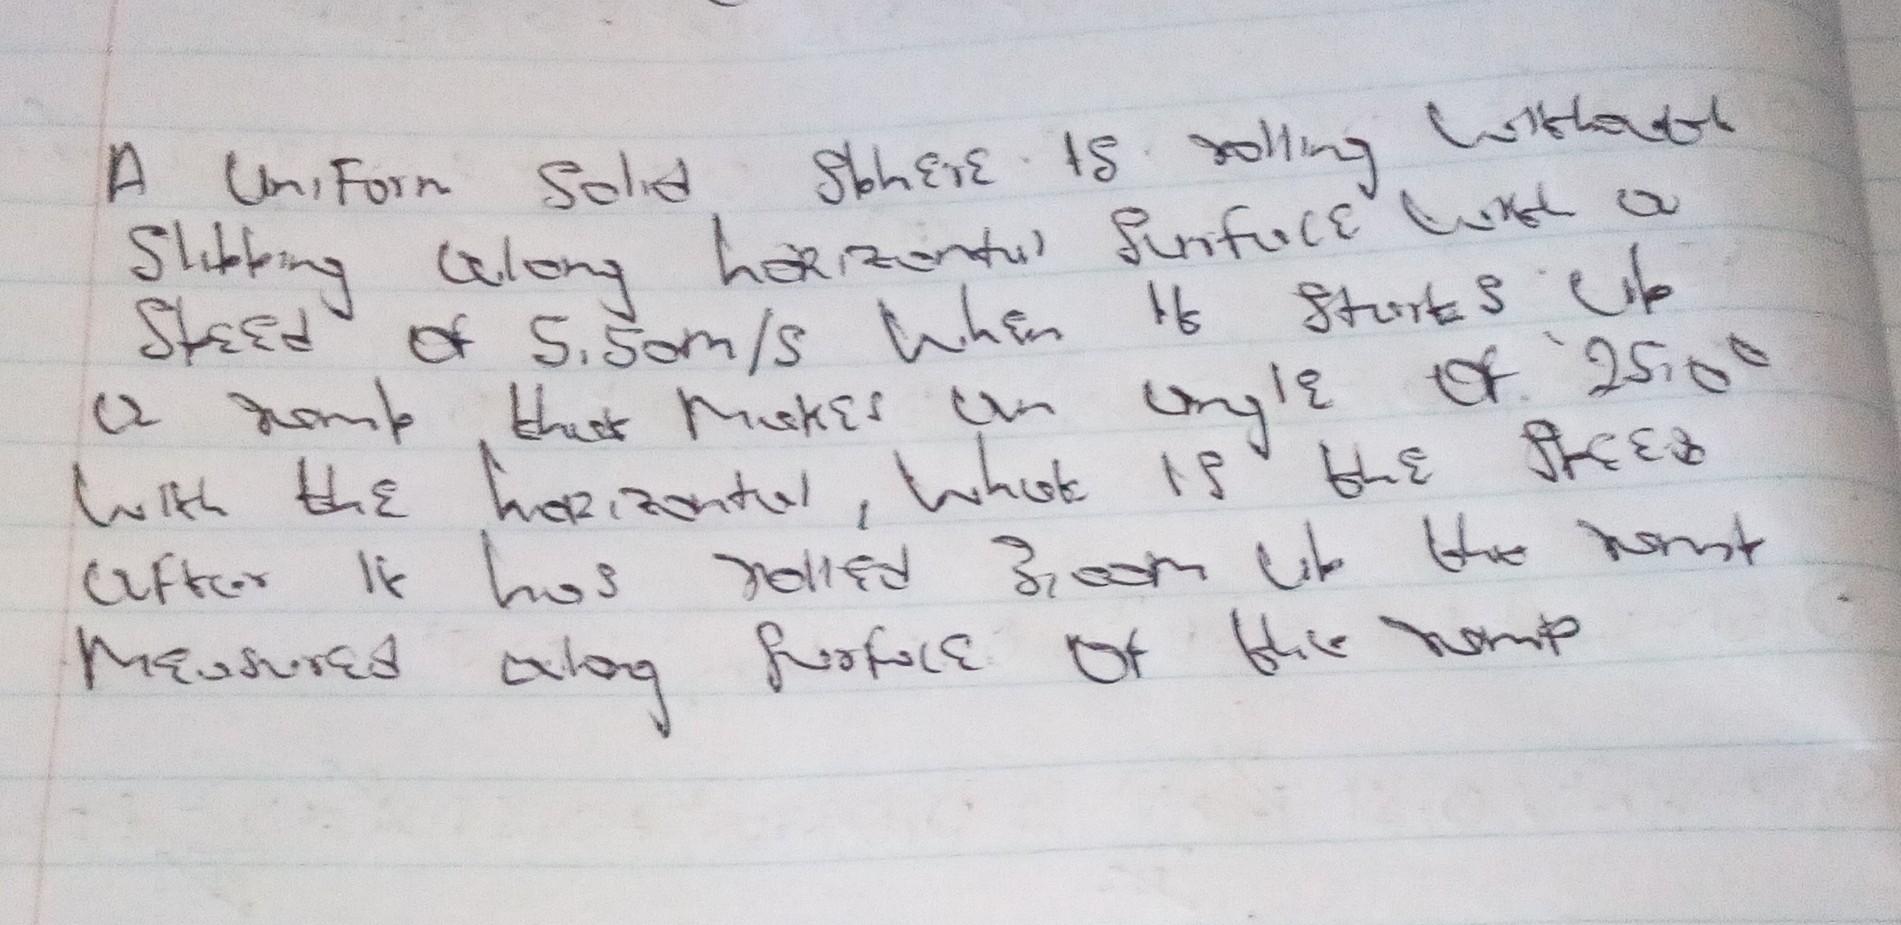 A Uniform Solid Sphere is rolling without
Slipping along horizontal Surface with a
Speed of 5.50m/s when it starts up
a ramp that makes an angle of 25.0°
with the horizontal, what is the speed
after it has rolled 3.00m up the ramp
measured along surface of the ramp